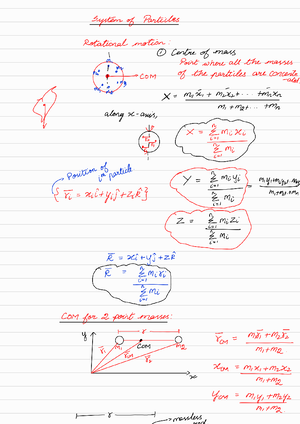 System of Particles
Rotational motion:
① Centre of mass
Point where all the masses
of the particles are concentra-
COM
X = m₁x₁ + m₂x₂ + ... + mₙxₙ
m₁ + m₂ + ... mₙ
along x-axis,
X = Σ mᵢ xᵢ
i=1
Σ mᵢ
i=1
Position of
iᵗʰ particle
{ r̄ᵢ = xᵢî + yᵢĵ + zᵢk̂ }
Y = Σ mᵢyᵢ
i=1
Σ mᵢ
i=1
Z = Σ mᵢzᵢ
i=1
Σ mᵢ
i=1
R̄ = xî + yĵ + zk̂
R̄ = Σ mᵢrᵢ
i=1
Σ mᵢ
i=1
COM for 2 point masses:
y
r
m₁
COM
m₂
r̄₁
r̄cm
r̄₂
x
r̄cm = m₁r̄₁ + m₂r̄₂
m₁ + m₂
xcm = m₁x₁ + m₂x₂
m₁ + m₂
ycm = m₁y₁ + m₂y₂
m₁ + m₂
r
massless